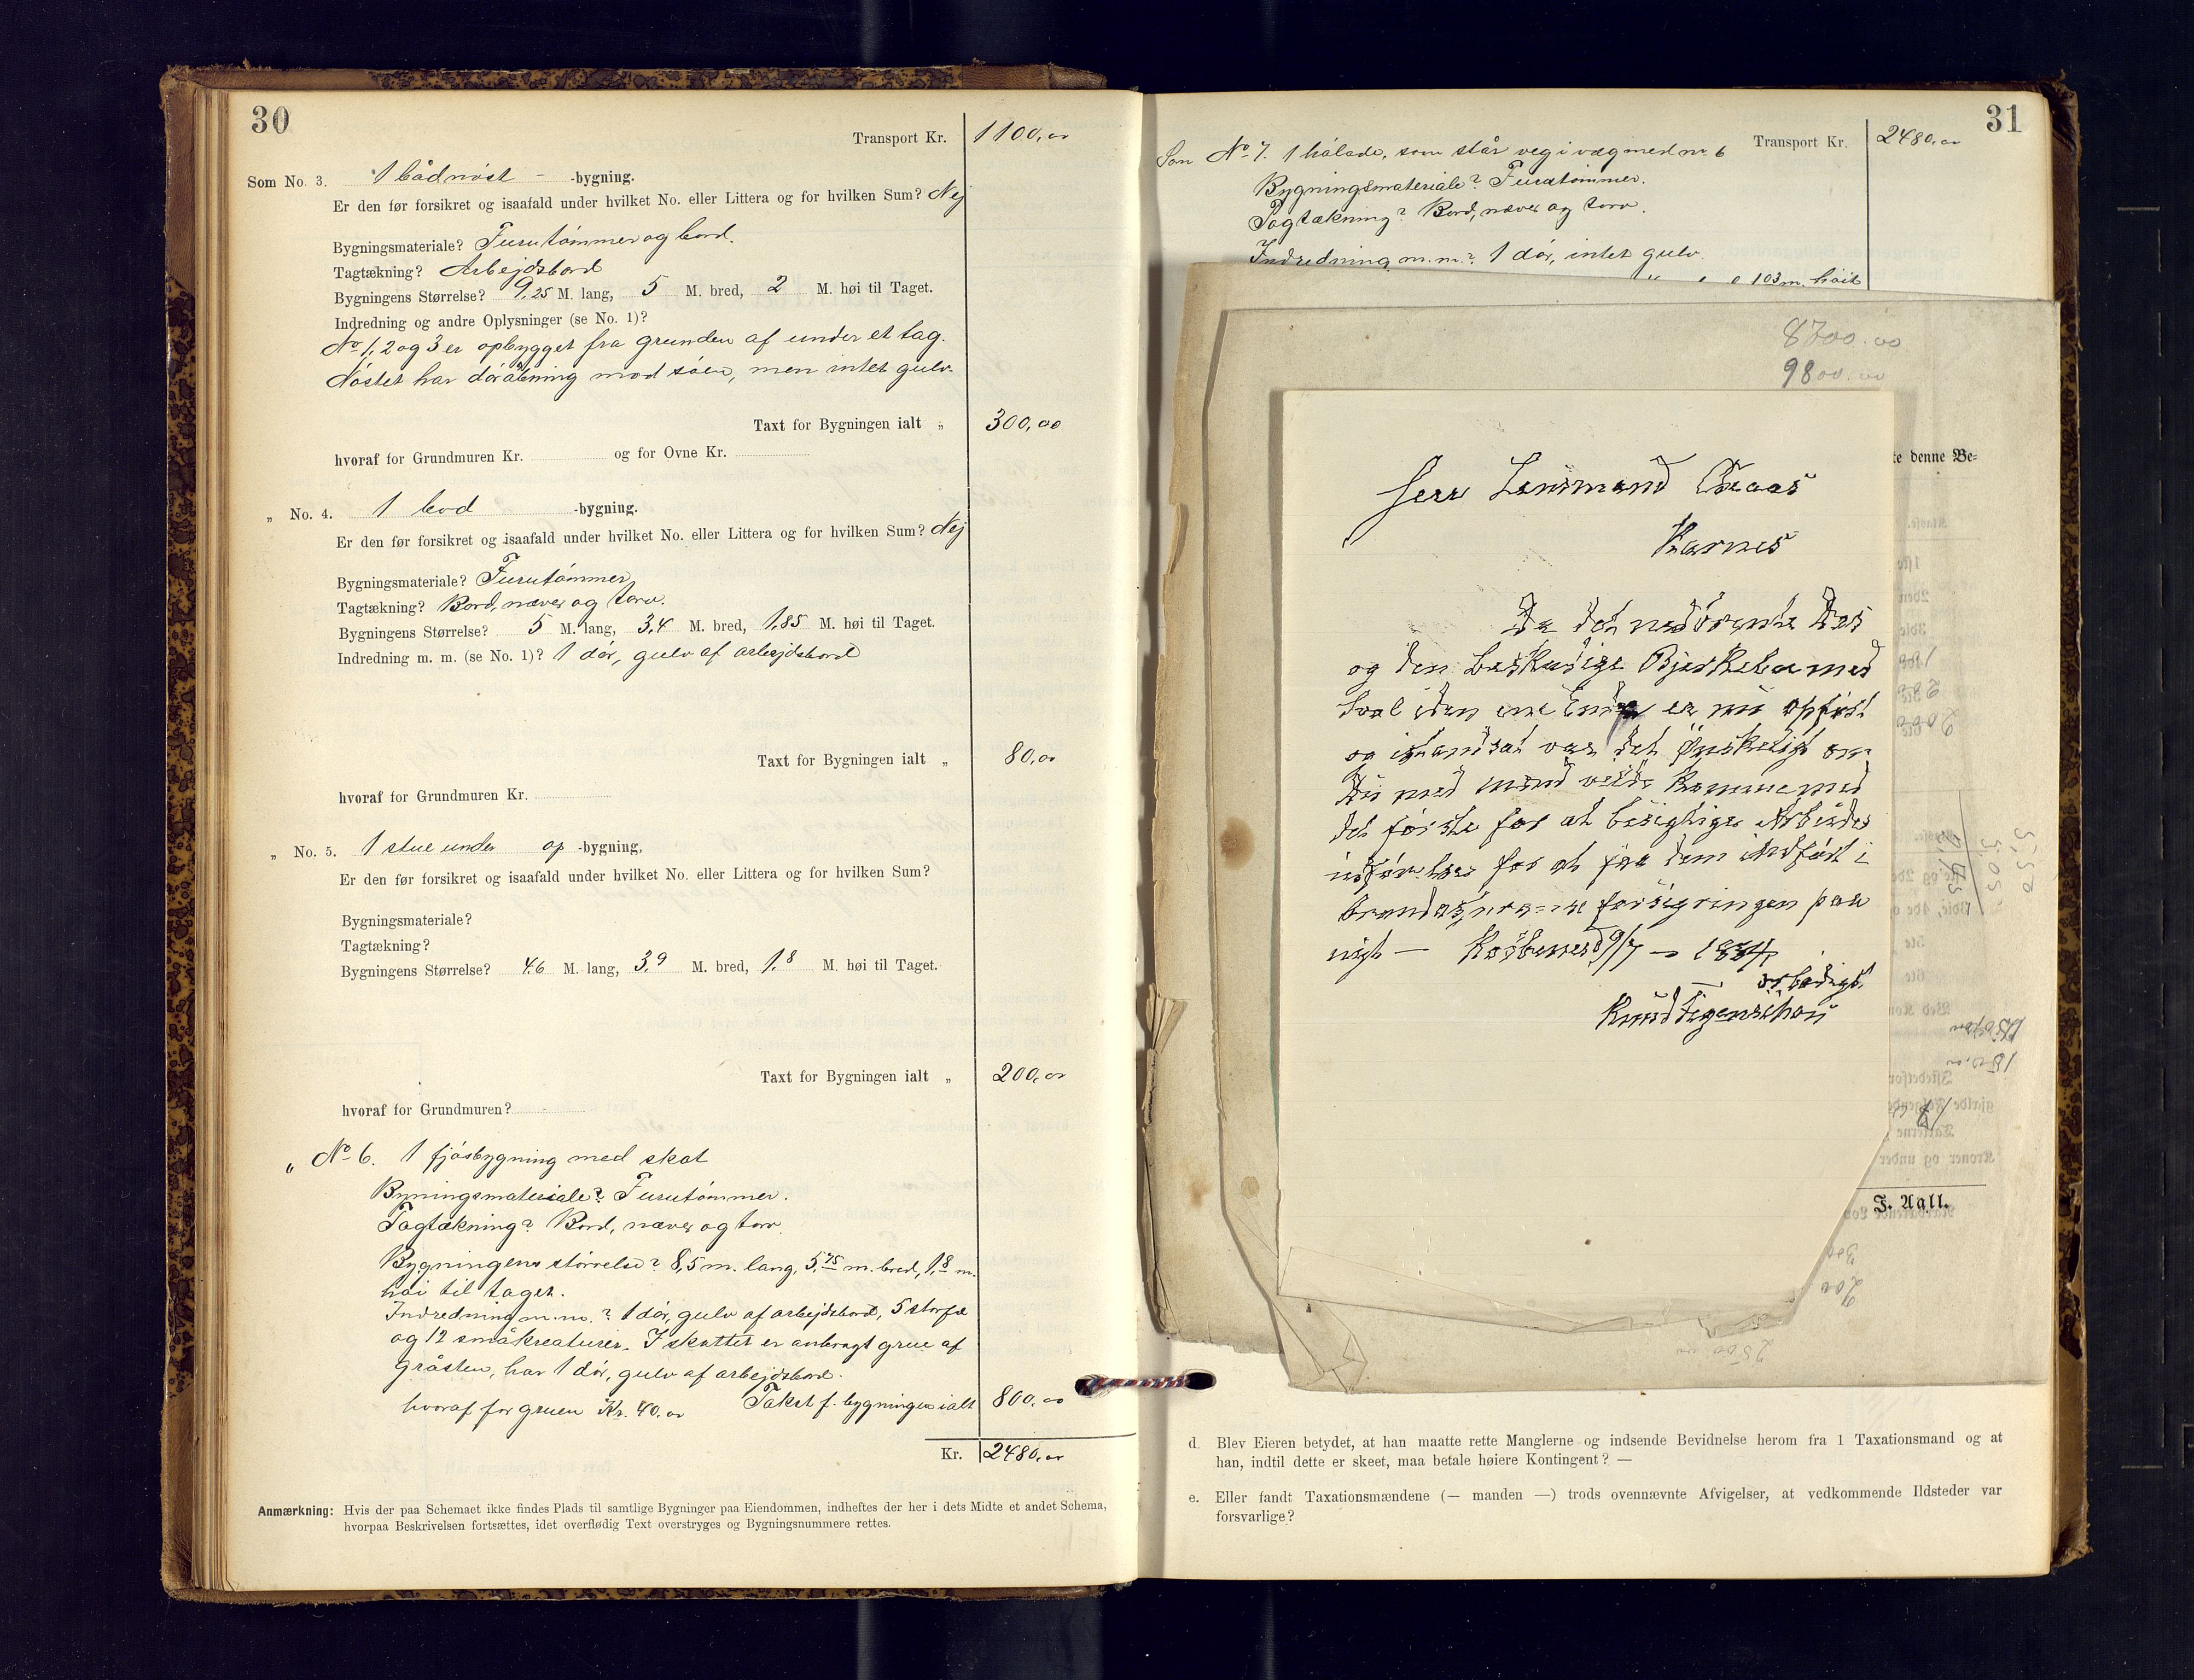 30
Transport Kr. 1100,00
Som No. 3. 1 bådnøst - -bygning.
Er den før forsikret og isaafald under hvilket No. eller Littera og for hvilken Sum? Nej
Bygningsmateriale? Furutømmer og bord.
Tagtækning? Arbejdsbord
Bygningens Størrelse? 9,25 M. lang, 5 M. bred, 2 M. høi til Taget.
Indredning og andre Oplysninger (se No. 1)?
No. 1, 2 og 3 er opbygget fra grunden af under et tag.
Nøstet har døråbning mod søen, men intet gulv.
Taxt for Bygningen ialt „ 300,00
hvoraf for Grundmuren Kr. og for Ovne Kr.
„ No. 4. 1 bod -bygning.
Er den før forsikret og isaafald under hvilket No. eller Littera og for hvilken Sum? Nej
Bygningsmateriale? Furutømmer
Tagtækning? Bord, næver og torv.
Bygningens Størrelse? 5 M. lang, 3,4 M. bred, 1,85 M. høi til Taget.
Indredning m. m. (se No. 1)? 1 dør, gulv af arbejdsbord
Taxt for Bygningen ialt „ 80,00
hvoraf for Grundmuren Kr.
„ No. 5. 1 stue under op -bygning,
Er den før forsikret og isaafald under hvilket No. eller Littera og for hvilken Sum?
Bygningsmateriale?
Tagtækning?
Bygningens Størrelse? 4,6 M. lang, 3,9 M. bred, 1,8 M. høi til Taget.
Taxt for Bygningen ialt „ 200,00
hvoraf for Grundmuren?
„ No 6. 1 fjøsbygning med skot
Bygningsmateriale? Furutømmer.
Tagtækning? Bord, næver og torv.
Bygningens størrelse? 8,5 m. lang, 5,75 m. bred, 1,8 m.
høi til taget.
Indredning m. m.? 1 dør, gulv af arbejdsbord, 5 storfæ
og 12 småkreaturer. I skottet er anbragt grue af
gråsten, har 1 dør, gulv af arbejdsbord.
hvoraf for gruen Kr. 40,00 Takst f. bygningen ialt 800,00
Kr. 2480,00
Anmærkning: Hvis der paa Schemaet ikke findes Plads til samtlige Bygninger paa Eiendommen, indheftes der her i dets Midte et andet Schema,
hvorpaa Beskrivelsen fortsættes, idet overflødig Text overstryges og Bygningsnummere rettes.
31
Transport Kr. 2480,00
Som No 7. 1 hølade, som står veg i væg med nr 6
Bygningsmateriale? Furutømmer.
Tagtækning? Bord, næver og torv.
Indredning m. m.? 1 dør, intet gulv.
8700.00
9800.00
te denne Be-
Herr Lensmand
Karnes
Da det nedbrente
og den
en er nu opført
og istandsat var det Ønskeligt om
Du med mænd vilde komme med
det første for at besigtige Arbeidet
for at faa dem indført i
paa
nigt —
ærbødigst
Knud Figenschou
F. Aall.
d. Blev Eieren betydet, at han maatte rette Manglerne og indsende Bevidnelse herom fra 1 Taxationsmand og at
han, indtil dette er skeet, maa betale høiere Kontingent? —
e. Eller fandt Taxationsmændene (— manden —) trods ovennævnte Afvigelser, at vedkommende Ildsteder var
forsvarlige?